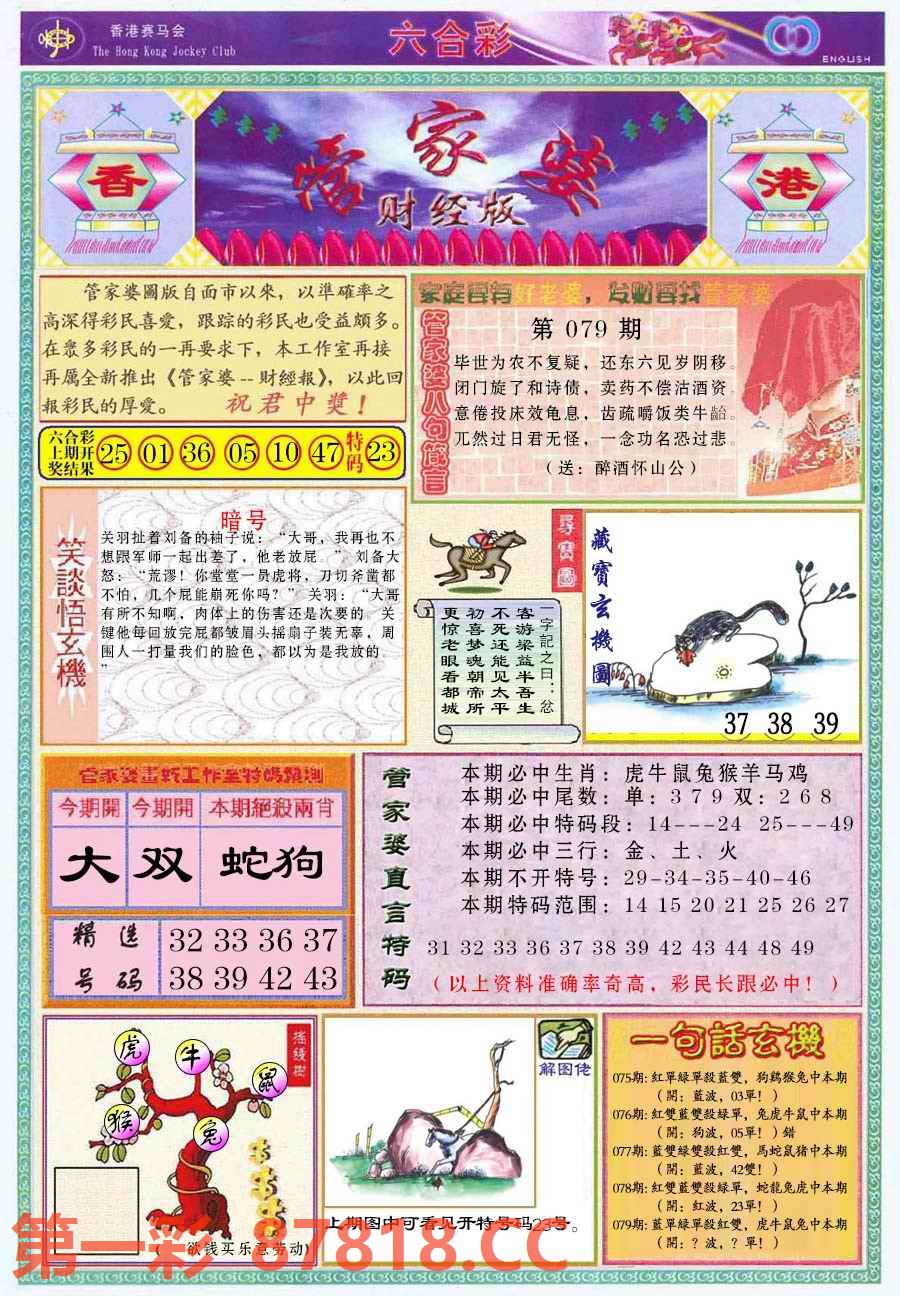 香港赛马会
The Hong Kong Jockey Club
六合彩
ENGLISH
香
管家婆
财经版
港
管家婆圖版自面市以來，以準確率之
高深得彩民喜愛，跟踪的彩民也受益頗多。
在衆多彩民的一再要求下，本工作室再接
再厲全新推出《管家婆--財經報》，以此回
報彩民的厚愛。 祝君中獎！
六合彩
上期开
奖结果
25 01 36 05 10 47 特码 23
家庭要有好老婆，发财要找管家婆
管家婆八句箴言
第 079 期
毕世为农不复疑，还东六见岁阴移。
闭门旋了和诗债，卖药不偿沽酒资。
意倦投床效龟息，齿疏嚼饭类牛齝。
兀然过日君无怪，一念功名恐过悲。
（送：醉酒怀山公）
笑談悟玄機
暗号
关羽扯着刘备的柚子说：“大哥，我再也不
想跟军师一起出差了，他老放屁。”刘备大
怒：“荒谬！你堂堂一员虎将，刀切斧凿都
不怕，几个屁能崩死你吗？”关羽：“大哥
有所不知啊，肉体上的伤害还是次要的，关
键他每回放完屁都皱眉头摇扇子装无辜，周
围人一打量我们的脸色，都以为是我放的。
”
尋寶圖
一字記之曰：忿
客游梁益半吾生
不死还能见太平
初喜梦魂朝帝所
更惊老眼看都城
藏寶玄機圖
37 38 39
管家婆畫敩工作室特碼預測
今期開 今期開 本期絕殺兩肖
大 双 蛇狗
精選
号码
32 33 36 37
38 39 42 43
管家婆直言特码
本期必中生肖：虎牛鼠兔猴羊马鸡
本期必中尾数：单：3 7 9 双：2 6 8
本期必中特码段：14---24 25---49
本期必中三行：金、土、火
本期不开特号：29-34-35-40-46
本期特码范围：14 15 20 21 25 26 27
31 32 33 36 37 38 39 42 43 44 48 49
（以上资料准确率奇高，彩民长跟必中！）
搖錢樹
虎
牛
鼠
猴
兔
欲钱买乐意劳动）
解图佬
上期图中可看见开特号码23号。
一句話玄機
075期: 紅單緑單殺藍雙，狗鷄猴兔中本期
（開：藍波，03單！）
076期: 紅雙藍雙殺緑單，兔虎牛鼠中本期
（開：狗波，05單！）错
077期: 藍雙緑雙殺紅雙，馬蛇鼠猪中本期
（開：藍波，42雙！）
078期: 紅雙藍雙殺緑單，蛇龍兔虎中本期
（開：紅波，23單！）
079期: 藍單緑單殺紅雙，虎牛鼠兔中本期
（開：？波，？單！）
第一彩 87818.CC